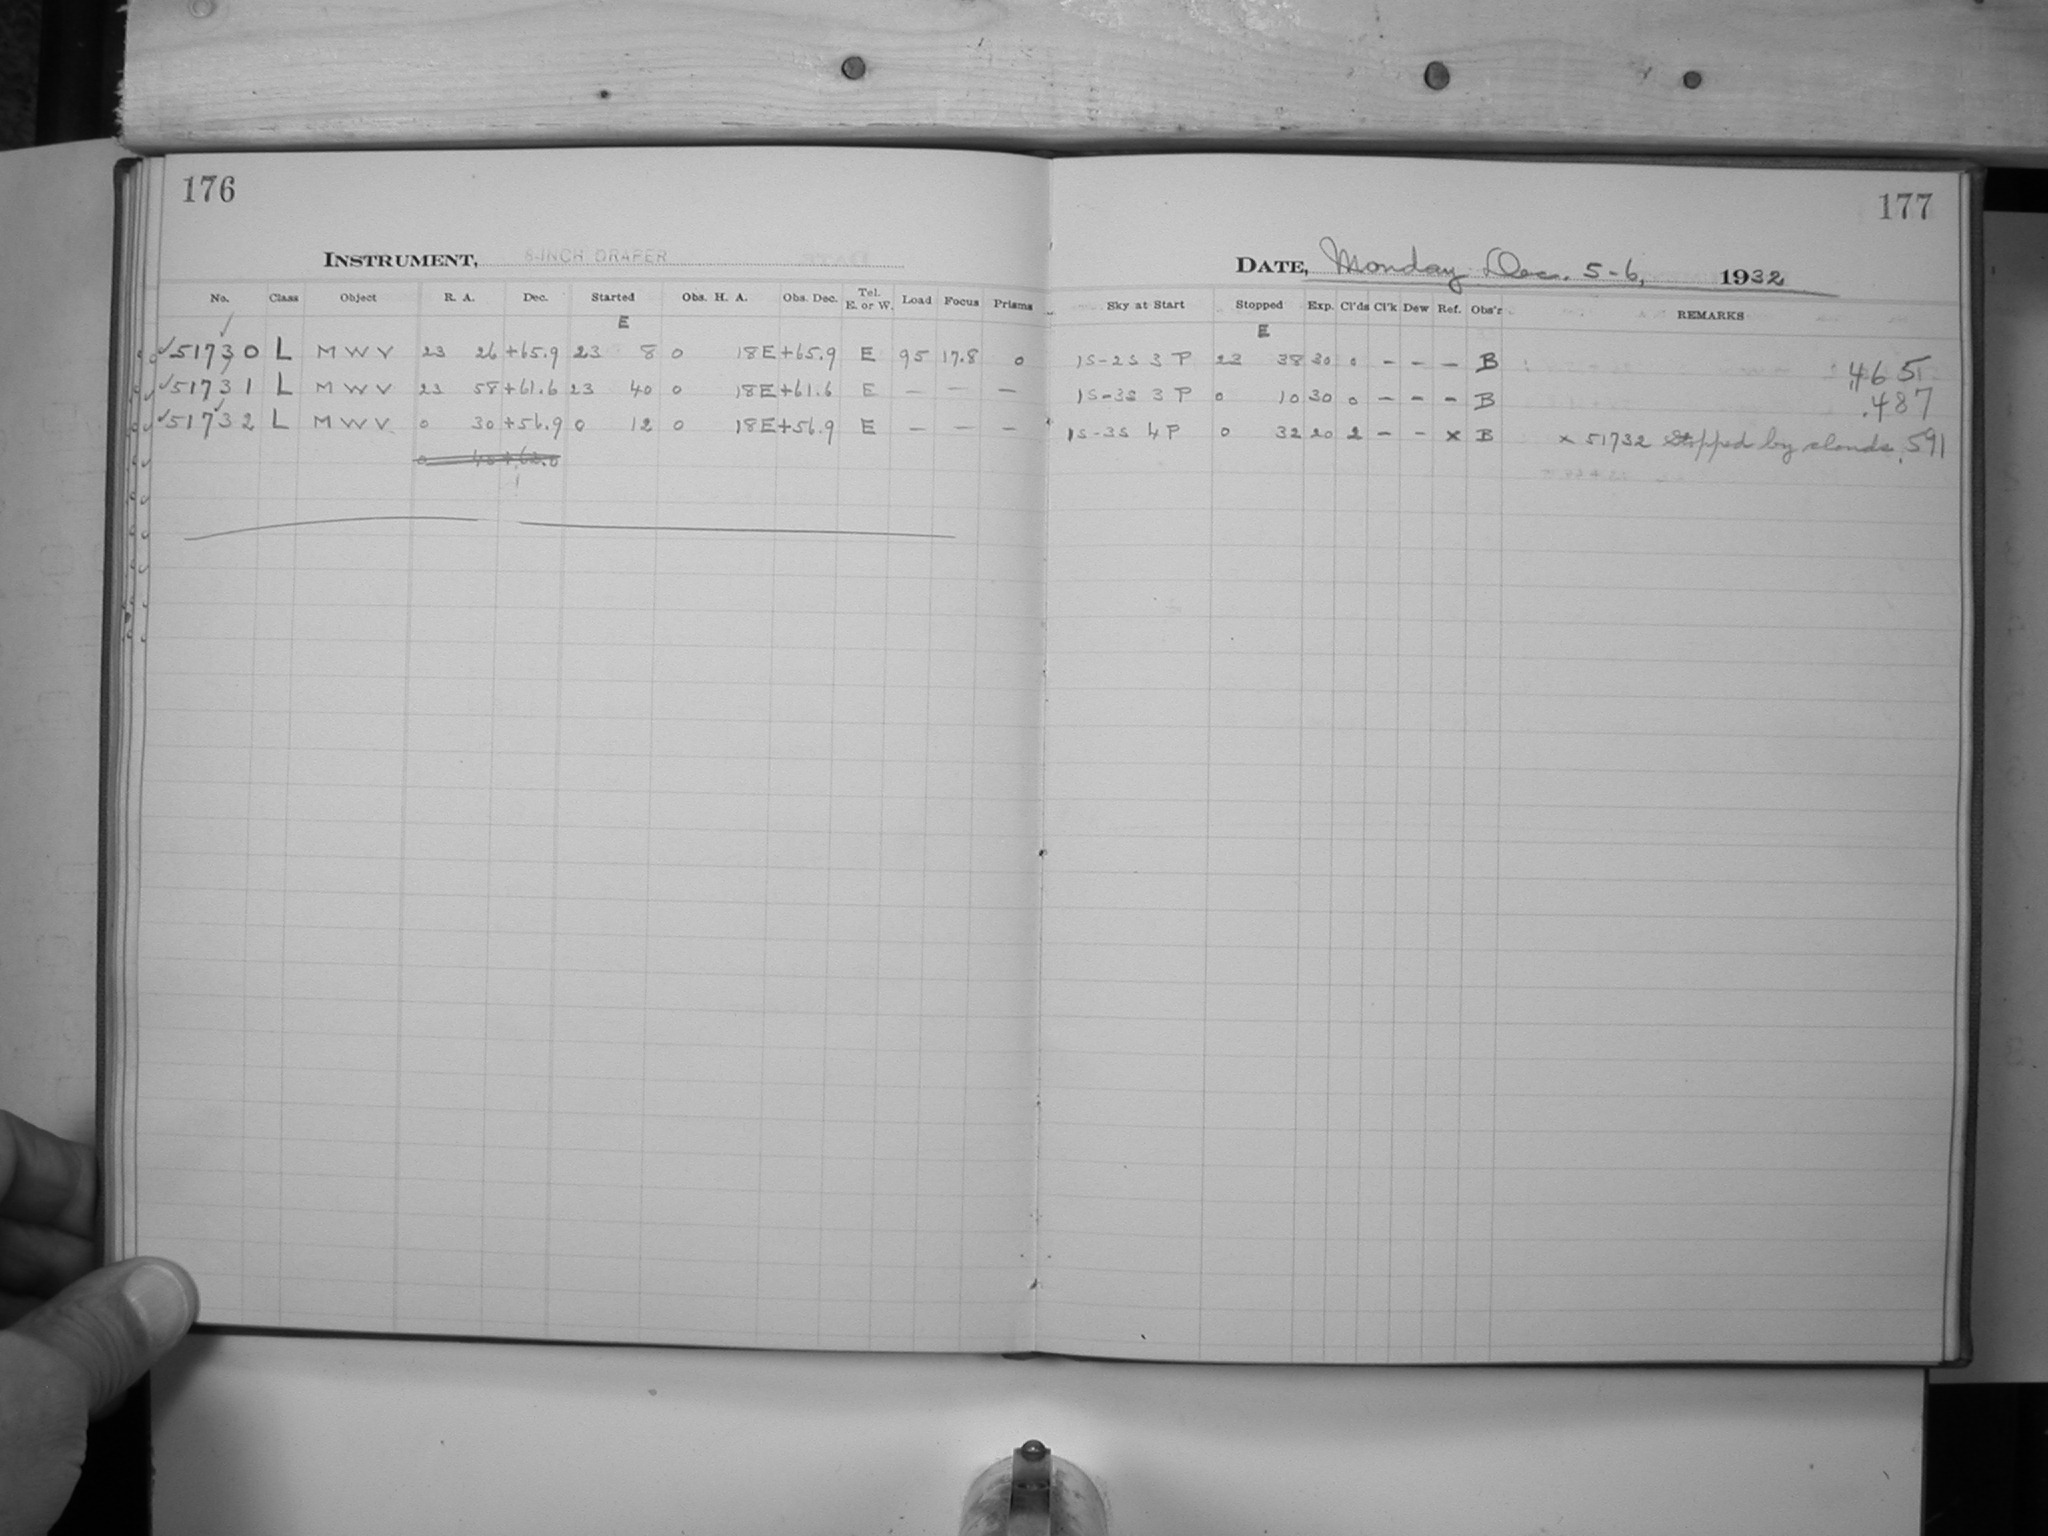 176
INSTRUMENT, 8-INCH DRAPER
No. Class Object R. A. Dec. Started Obs. H. A. Obs. Dec. Tel. E. or W. Load Focus Prisms
E
✓51730 L M W V 23 26 +65.9 23 8 0 18E +65.9 E 95 17.8 0
✓51731 L M W V 23 58 +61.6 23 40 0 18E +61.6 E — — —
✓51732 L M W V 0 30 +56.9 0 12 0 18E +56.9 E — — —
177
DATE, Monday Dec. 5-6, 1932
Sky at Start Stopped Exp. Cl'ds Cl'k Dew Ref. Obs'r REMARKS
E
1S-2S 3 P 23 38 30 0 - - - B .465
1S-3S 3 P 0 10 30 0 - - - B .487
1S-3S 4 P 0 32 20 2 - - x B x 51732 Stopped by clouds .591